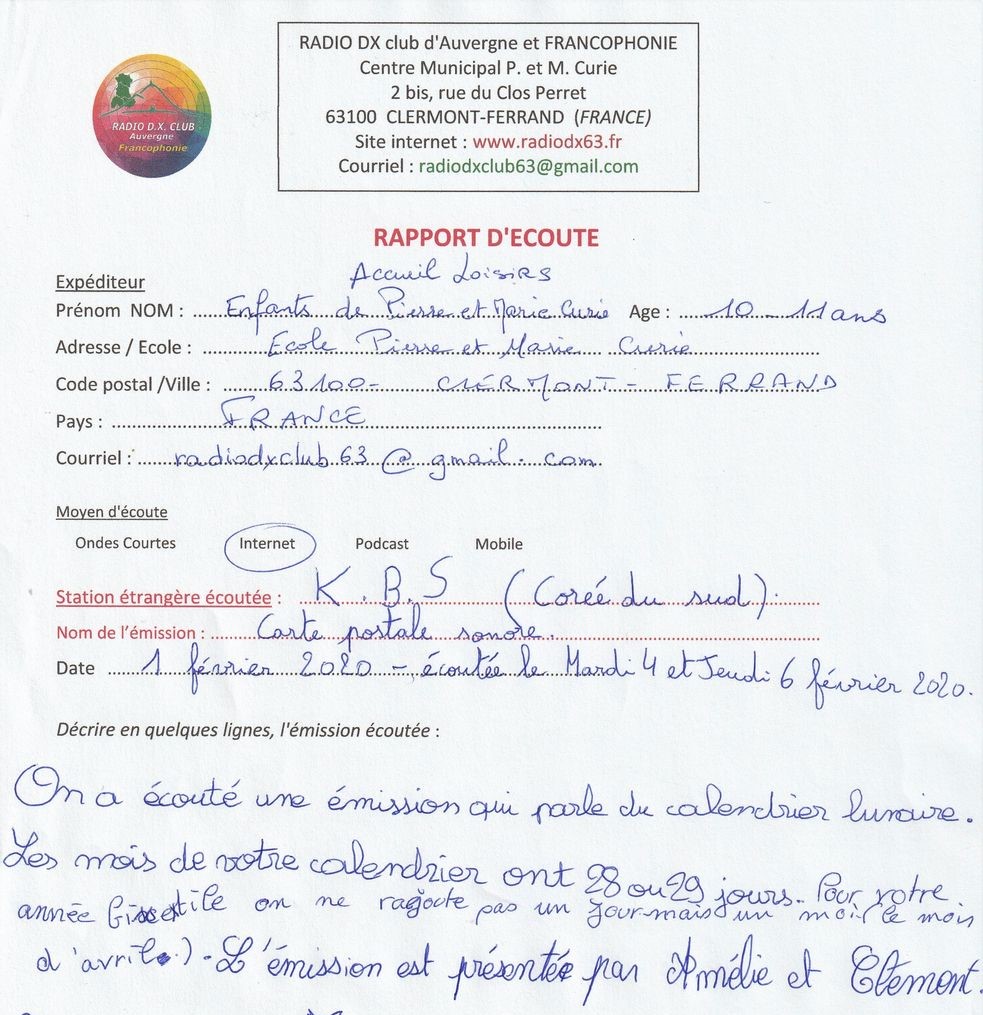 RADIO DX club d'Auvergne et FRANCOPHONIE
Centre Municipal P. et M. Curie
2 bis, rue du Clos Perret
63100 CLERMONT-FERRAND (FRANCE)
Site internet : www.radiodx63.fr
Courriel : radiodxclub63@gmail.com
RADIO D.X. CLUB
Auvergne
Francophonie
RAPPORT D'ECOUTE
Accueil Loisirs
Expéditeur
Prénom NOM : Enfants de Pierre et Marie Curie Age : 10 - 11 ans
Adresse / Ecole : Ecole Pierre et Marie Curie
Code postal /Ville : 63100 - CLERMONT - FERRAND
Pays : FRANCE
Courriel : radiodxclub63@gmail.com
Moyen d'écoute
Ondes Courtes Internet Podcast Mobile
Station étrangère écoutée : K.B.S (Corée du sud).
Nom de l'émission : Carte postale sonore.
Date 1 février 2020 - écoutée le Mardi 4 et Jeudi 6 février 2020.
Décrire en quelques lignes, l'émission écoutée :
On a écouté une émission qui parle du calendrier lunaire.
Les mois de votre calendrier ont 28 ou 29 jours. Pour votre
année on ne ragoute pas un jour mais un mois (le mois
d'avril.). L'émission est présentée par Amélie et Clemont.